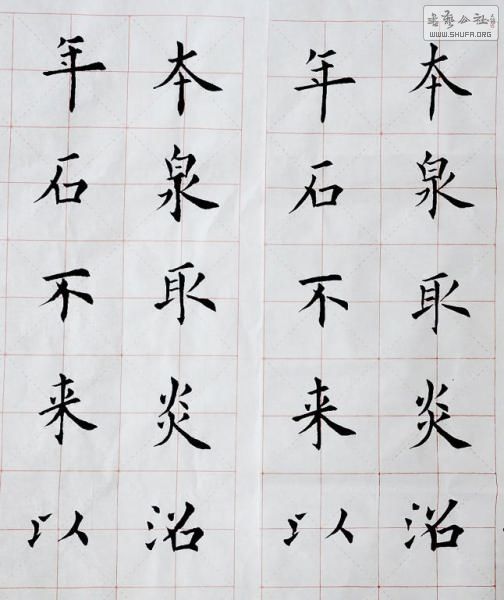 本泉取炎沿
年石不来以
本泉取炎沿
年石不来以
书艺公社
WWW.SHUFA.ORG